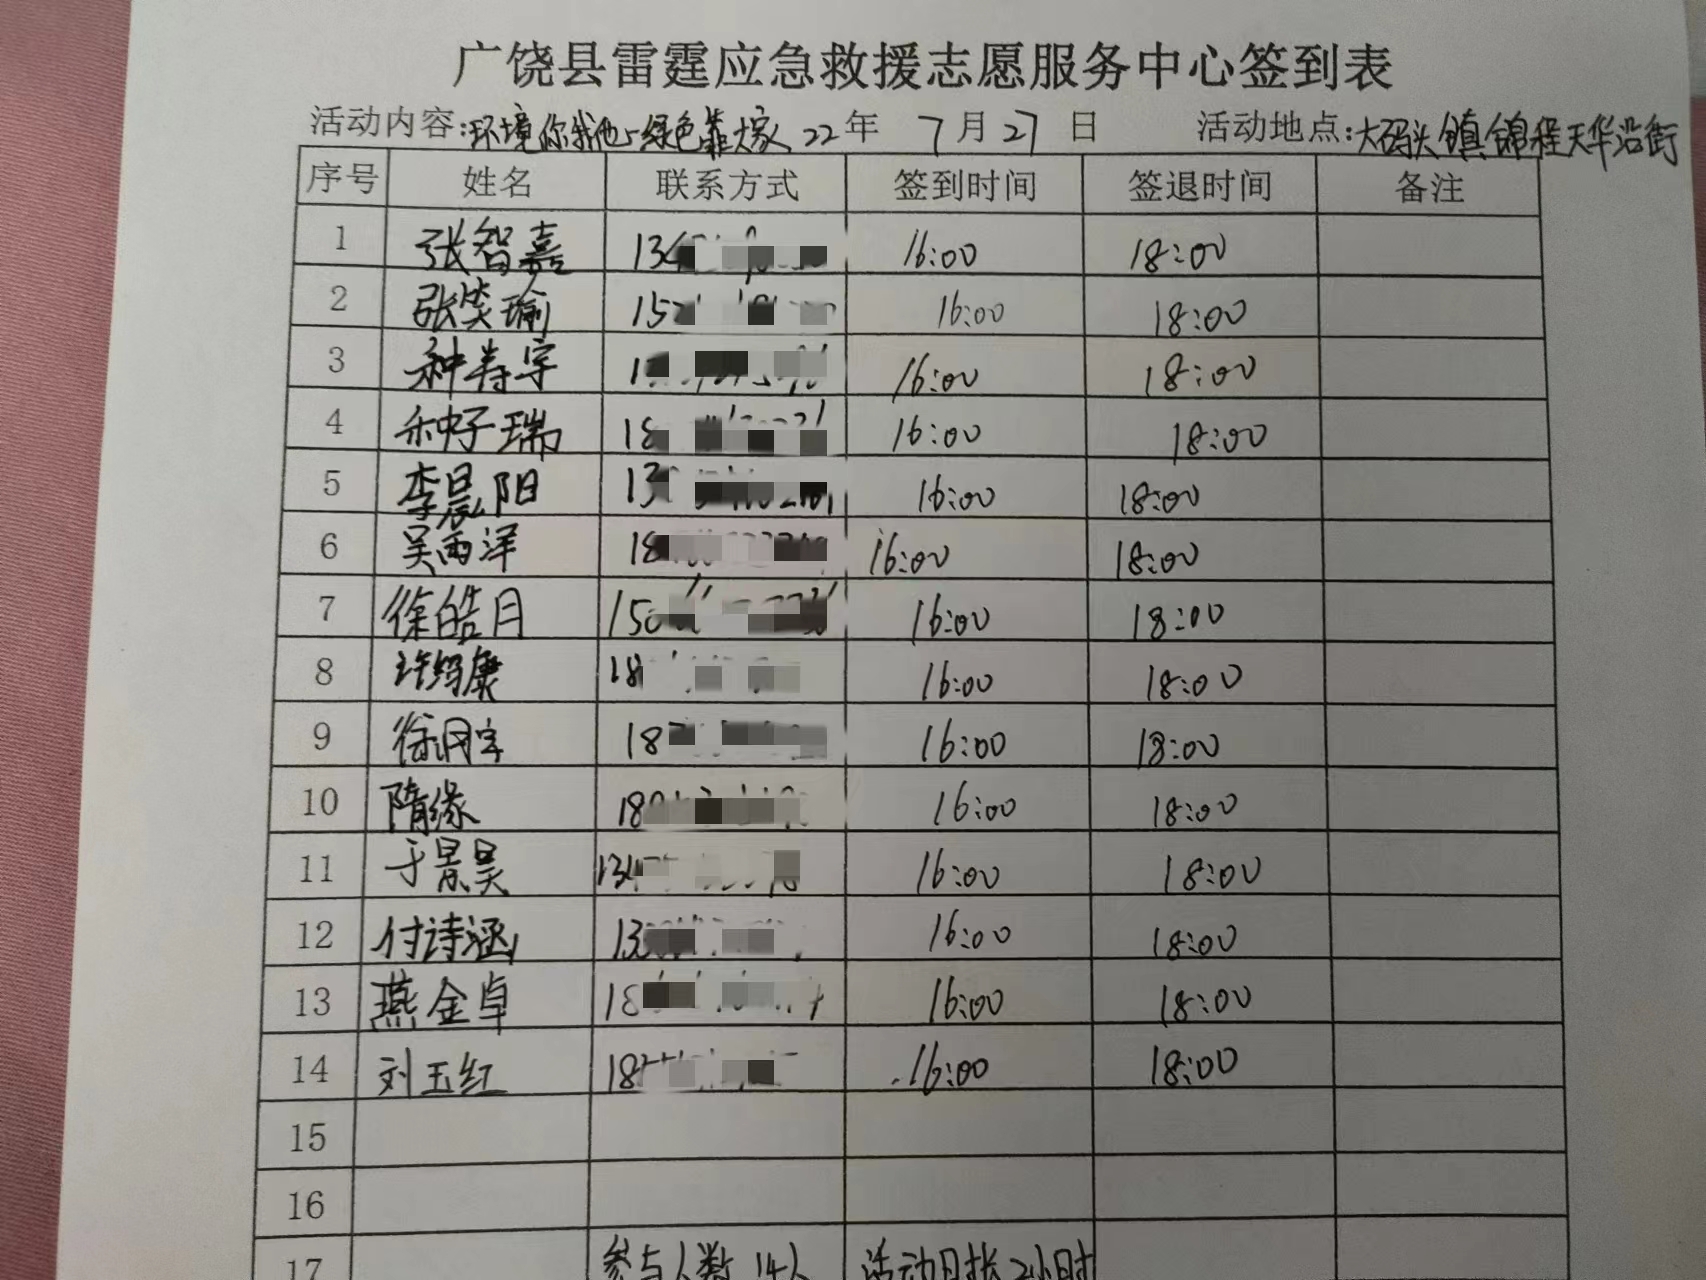 广饶县雷霆应急救援志愿服务中心签到表
活动内容:环境你我他,绿色靠大家 22年 7月27日 活动地点:大码头镇锦程天华沿街
序号 姓名 联系方式 签到时间 签退时间 备注
1 张智嘉 134 16:00 18:00
2 张笑瑜 152 16:00 18:00
3 种寿宇 1 16:00 18:00
4 种子瑞 18 16:00 18:00
5 李晨阳 13 16:00 18:00
6 吴雨洋 18 16:00 18:00
7 徐皓月 150 16:00 18:00
8 许 康 18 16:00 18:00
9 徐润字 18 16:00 18:00
10 隋缘 180 16:00 18:00
11 于景昊 134 16:00 18:00
12 付诗涵 13 16:00 18:00
13 燕金卓 18 16:00 18:00
14 刘玉红 18 16:00 18:00
15
16
17 参与人数 14人 活动时长2小时